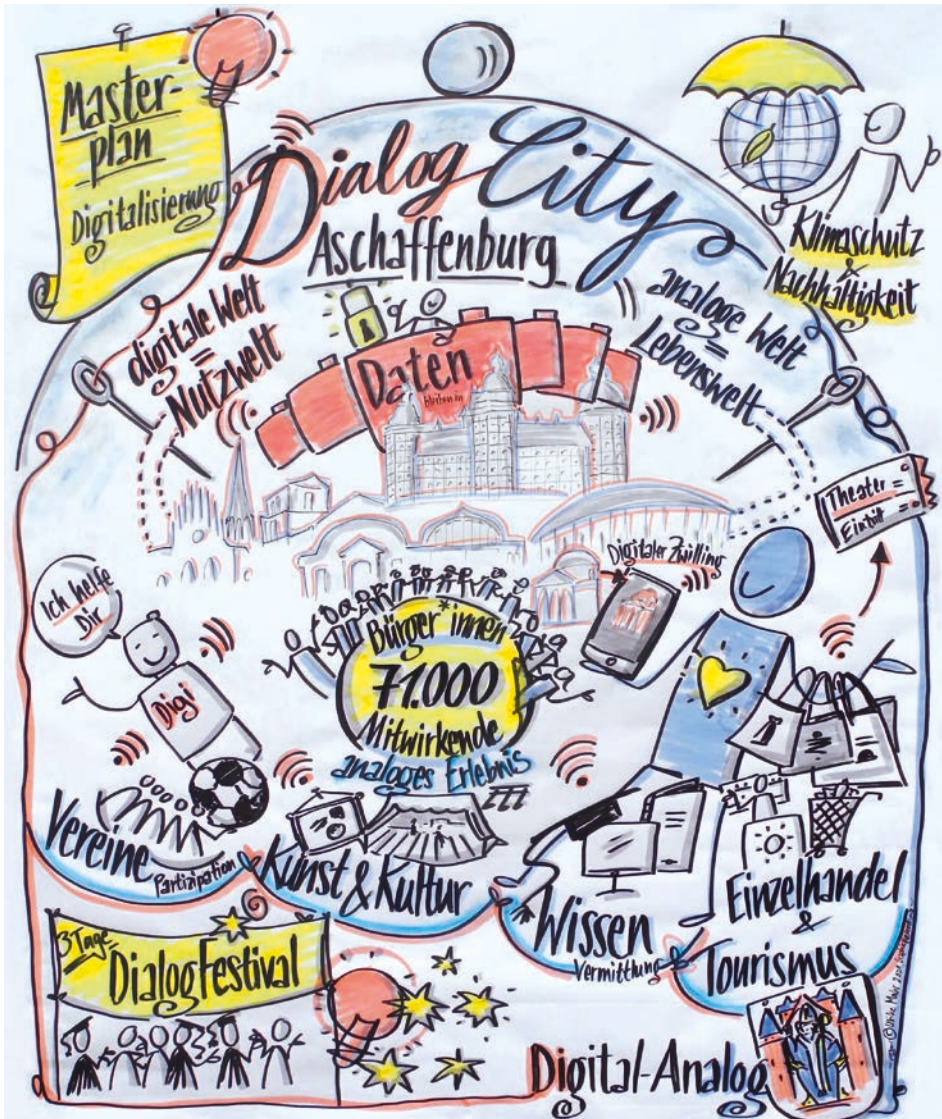 Master-
plan
Digitalisierung
Dialog City
Aschaffenburg
Klimaschutz
&
Nachhaltigkeit
digitale Welt
=
Nutzwelt
analoge Welt
=
Lebenswelt
Daten
bleiben in
Theater =
Eintritt =
Digitaler Zwilling
Ich helfe
Dir
Digi
Bürger*innen
71.000
Mitwirkende
analoges Erlebnis
Vereine
Partizipation
Kunst & Kultur
Wissen
Vermittlung
Einzelhandel
&
Tourismus
3 Tage
DialogFestival
Digital-Analog